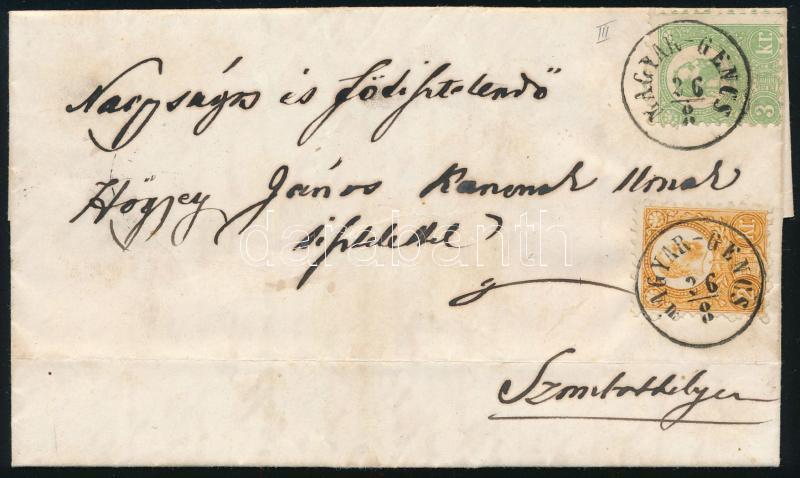 III
Nagyságos és Főtisztelendő
Hőgyey János Kanonok Urnak
tisztelettel
Szombathelyen
MAGYAR-GENCS
26/8
3 kr.
MAGYAR-GENCS
26/8
kr.
darabanth